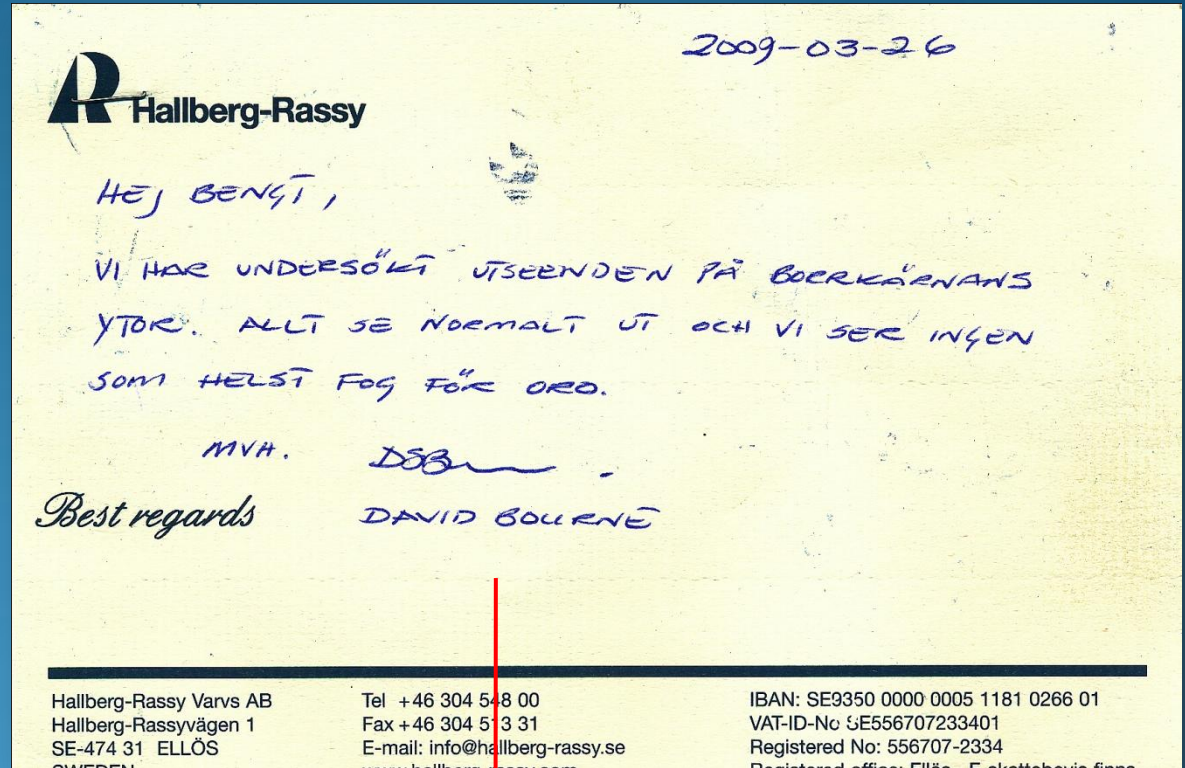 2009-03-26
Hallberg-Rassy
HEJ BENGT,
VI HAR UNDERSÖKT UTSEENDEN PÅ BORRKÄRNANS
YTOR. ALLT SE NORMALT UT OCH VI SER INGEN
SOM HELST FOG FÖR ORO.
MVH. DSB
Best regards DAVID BOURNE
Hallberg-Rassy Varvs AB
Hallberg-Rassyvägen 1
SE-474 31 ELLÖS
SWEDEN
Tel +46 304 548 00
Fax +46 304 513 31
E-mail: info@hallberg-rassy.se
www.hallberg-rassy.com
IBAN: SE9350 0000 0005 1181 0266 01
VAT-ID-No SE556707233401
Registered No: 556707-2334
Registered office: Ellös - F-skattebevis finns